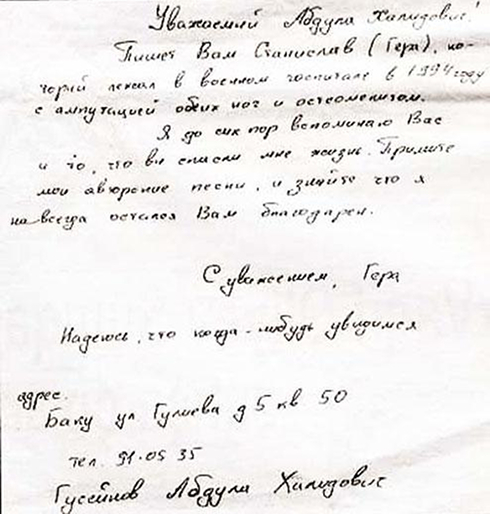 Уважаемый Абдула Халидович!
Пишет Вам Станислав (Гера), ко-
торый лежал в военном госпитале в 1994 году
с ампутацией обеих ног и остеомелитом.
Я до сих пор вспоминаю Вас
и то, что вы спасли мне жизнь. Примите
мои авторские песни, и знайте что я
навсегда остался Вам благодарен.
С уважением, Гера
Надеюсь, что когда-нибудь увидимся
адрес.
Баку ул Гулиева д 5 кв 50
тел. 91-05 35
Гусейнов Абдула Халидович